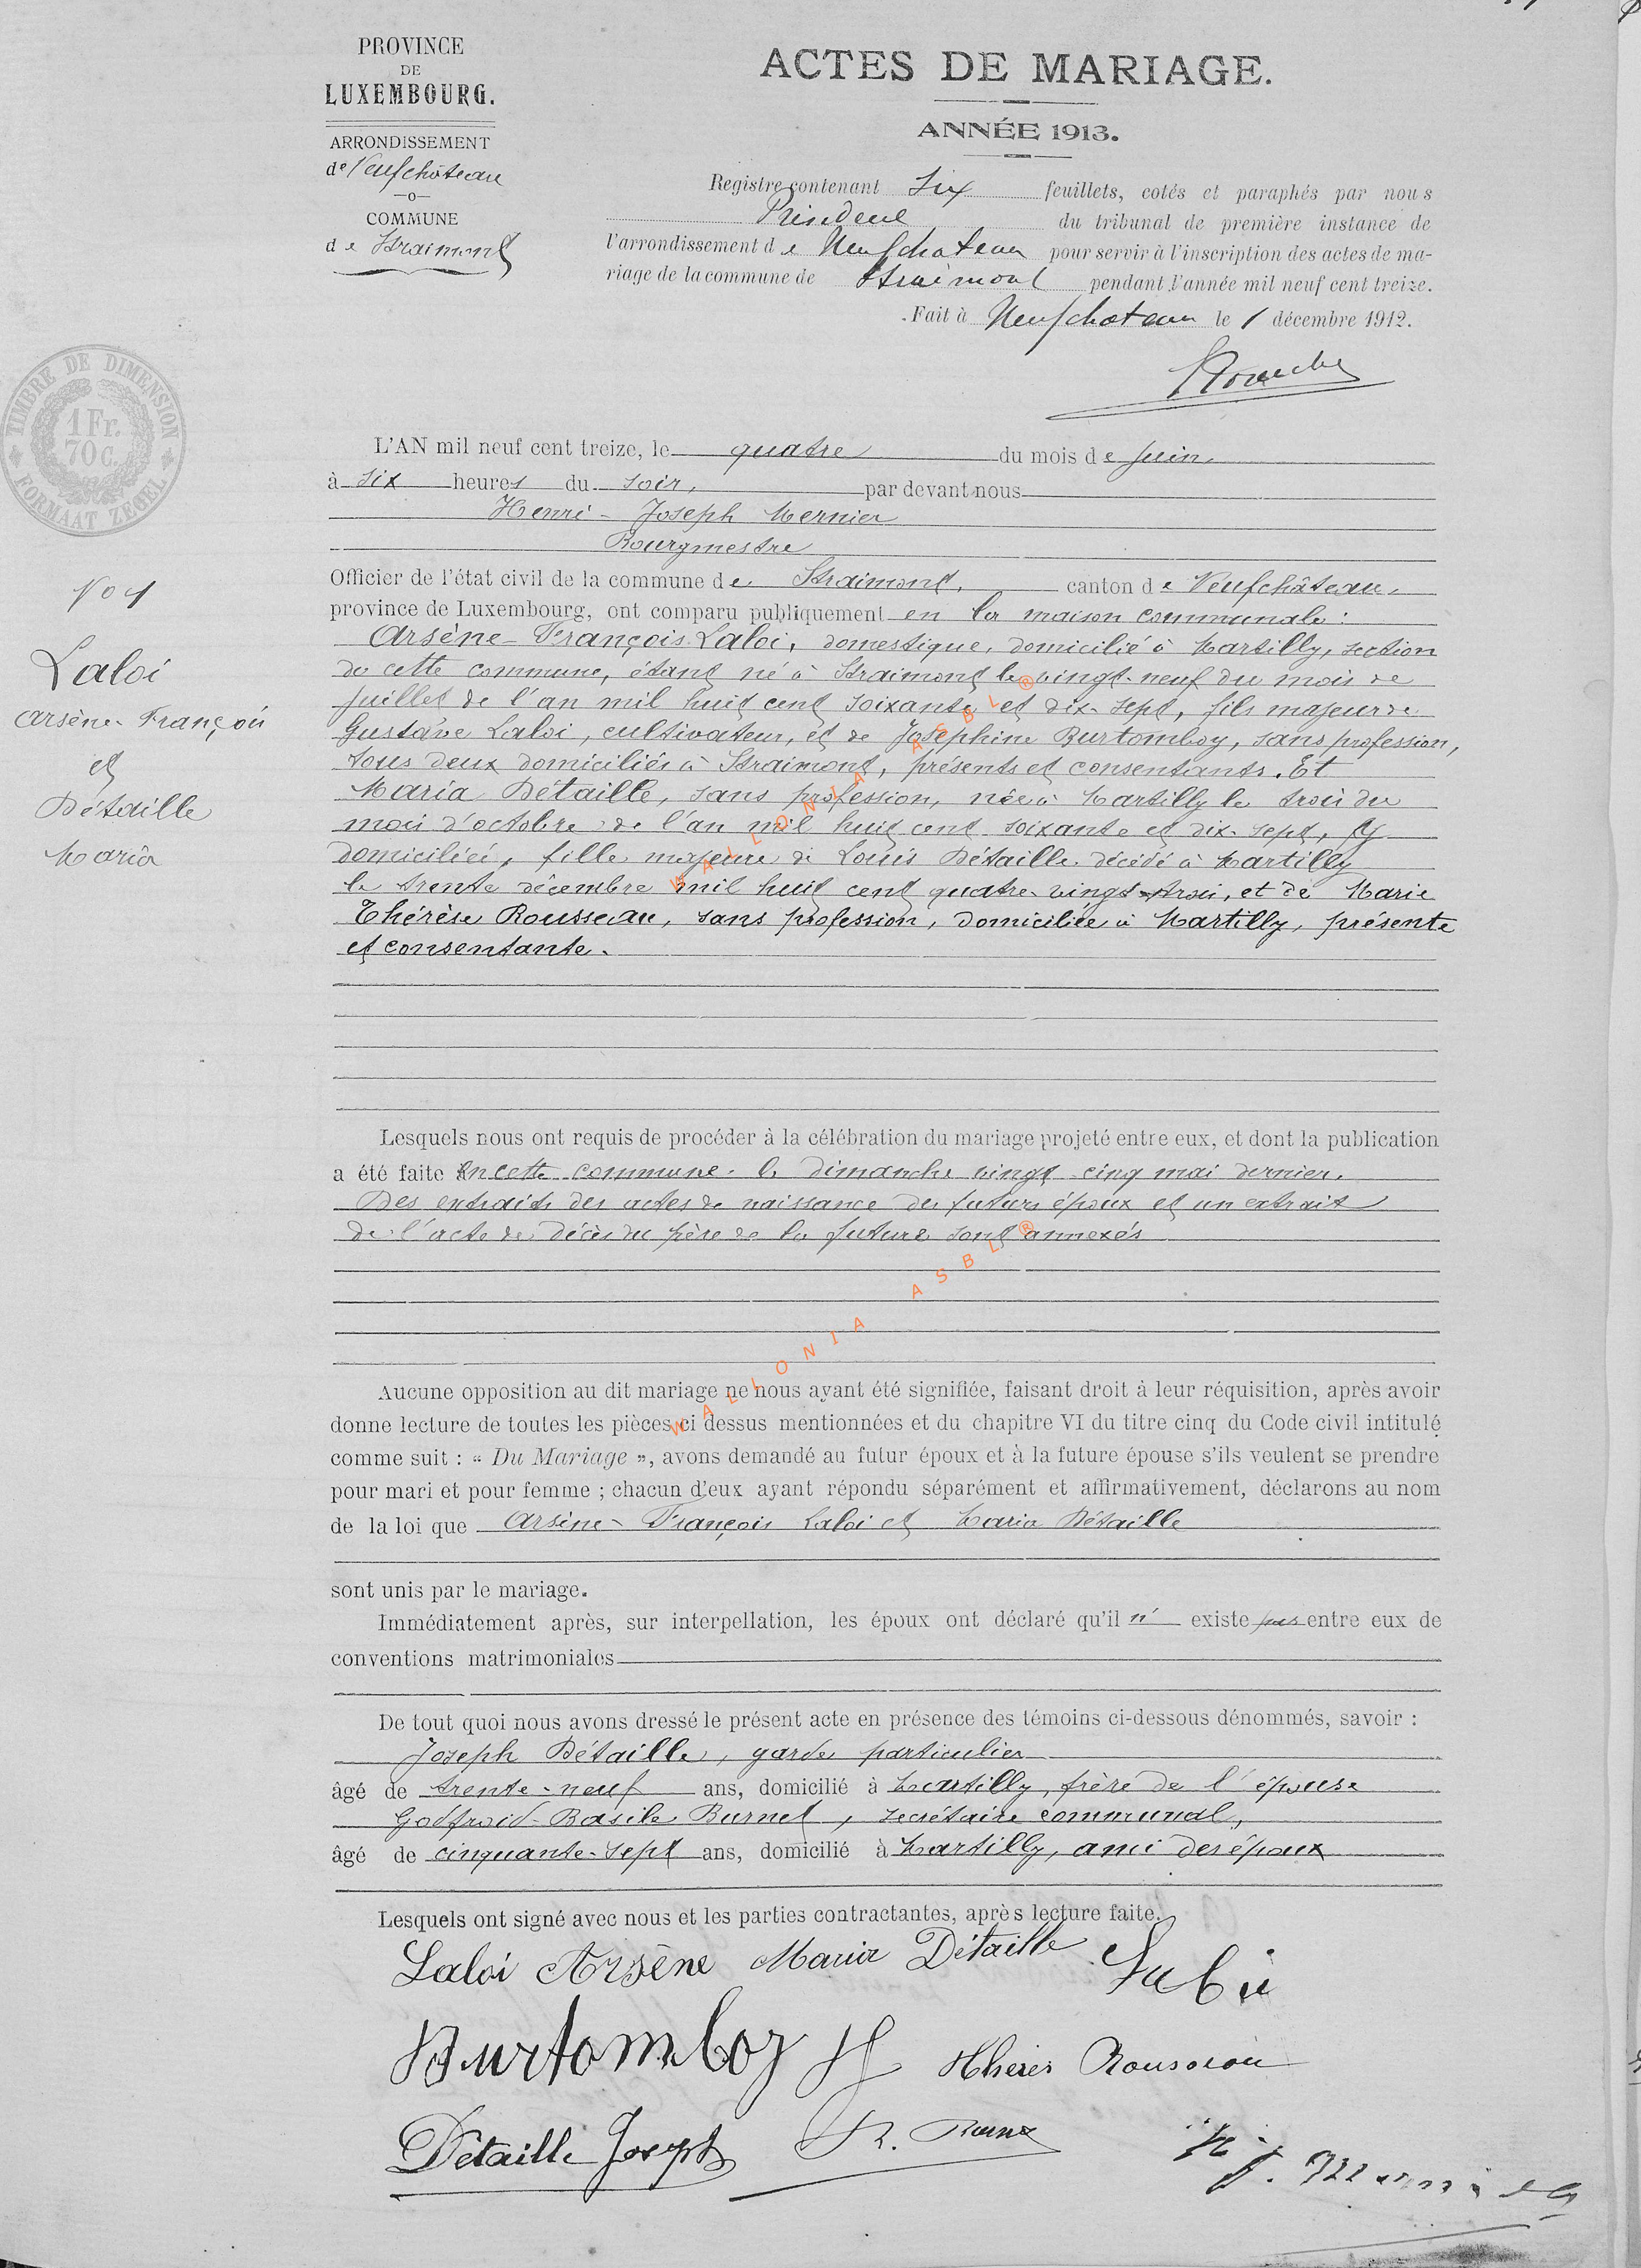 PROVINCE
DE
LUXEMBOURG.
ARRONDISSEMENT
de Neufchâteau
—o—
COMMUNE
de Straimont
ACTES DE MARIAGE.
ANNÉE 1913.
Registre contenant six feuillets, cotés et paraphés par nous
Président du tribunal de première instance de
l'arrondissement de Neufchateau pour servir à l'inscription des actes de ma-
riage de la commune de Straimont pendant l'année mil neuf cent treize.
Fait à Neufchateau le 1 décembre 1912.
TIMBRE DE DIMENSION
1 Fr.
70 c.
FORMAAT ZEGEL
L'AN mil neuf cent treize, le quatre du mois de juin,
à six heures du soir, par devant nous
Henri-Joseph Mernier
Bourgmestre
Officier de l'état civil de la commune de Straimont, canton de Neufchâteau,
province de Luxembourg, ont comparu publiquement en la maison communale:
No 1
Laloi
Arsène-François
et
Détaille
Maria
Arsène-François Laloi, domestique, domicilié à Martilly, section
de cette commune, étant né à Straimont le vingt-neuf du mois de
juillet de l'an mil huit cent soixante et dix-sept, fils majeur de
Gustave Laloi, cultivateur, et de Joséphine Burtomboy, sans profession,
tous deux domiciliés à Straimont, présents et consentants. Et
Maria Détaille, sans profession, née à Martilly le trois du
mois d'octobre de l'an mil huit cent soixante et dix-sept, y
domiciliée, fille majeure de Louis Détaille décédé à Martilly
le trente décembre mil huit cent quatre-vingt-trois, et de Marie
Thérèse Rousseau, sans profession, domiciliée à Martilly, présente
et consentante.
Lesquels nous ont requis de procéder à la célébration du mariage projeté entre eux, et dont la publication
a été faite en cette commune le dimanche vingt-cinq mai dernier.
Des extraits des actes de naissance des futurs époux et un extrait
de l'acte de décès du père de la future sont annexés
WALLONIA ASBL ®
WALLONIA ASBL ®
Aucune opposition au dit mariage ne nous ayant été signifiée, faisant droit à leur réquisition, après avoir
donne lecture de toutes les pièces ci dessus mentionnées et du chapitre VI du titre cinq du Code civil intitulé
comme suit : « Du Mariage », avons demandé au futur époux et à la future épouse s'ils veulent se prendre
pour mari et pour femme ; chacun d'eux ayant répondu séparément et affirmativement, déclarons au nom
de la loi que Arsène-François Laloi et Maria Détaille
sont unis par le mariage.
Immédiatement après, sur interpellation, les époux ont déclaré qu'il n' existe pas entre eux de
conventions matrimoniales
De tout quoi nous avons dressé le présent acte en présence des témoins ci-dessous dénommés, savoir :
Joseph Détaille, garde particulier
âgé de trente-neuf ans, domicilié à Martilly, frère de l'épouse
Godfroid-Basile Burnet, secrétaire communal,
âgé de cinquante-sept ans, domicilié à Martilly, ami des époux
Lesquels ont signé avec nous et les parties contractantes, après lecture faite.
Laloi Arsène Maria Détaille
Burtomboy
Détaille Joseph